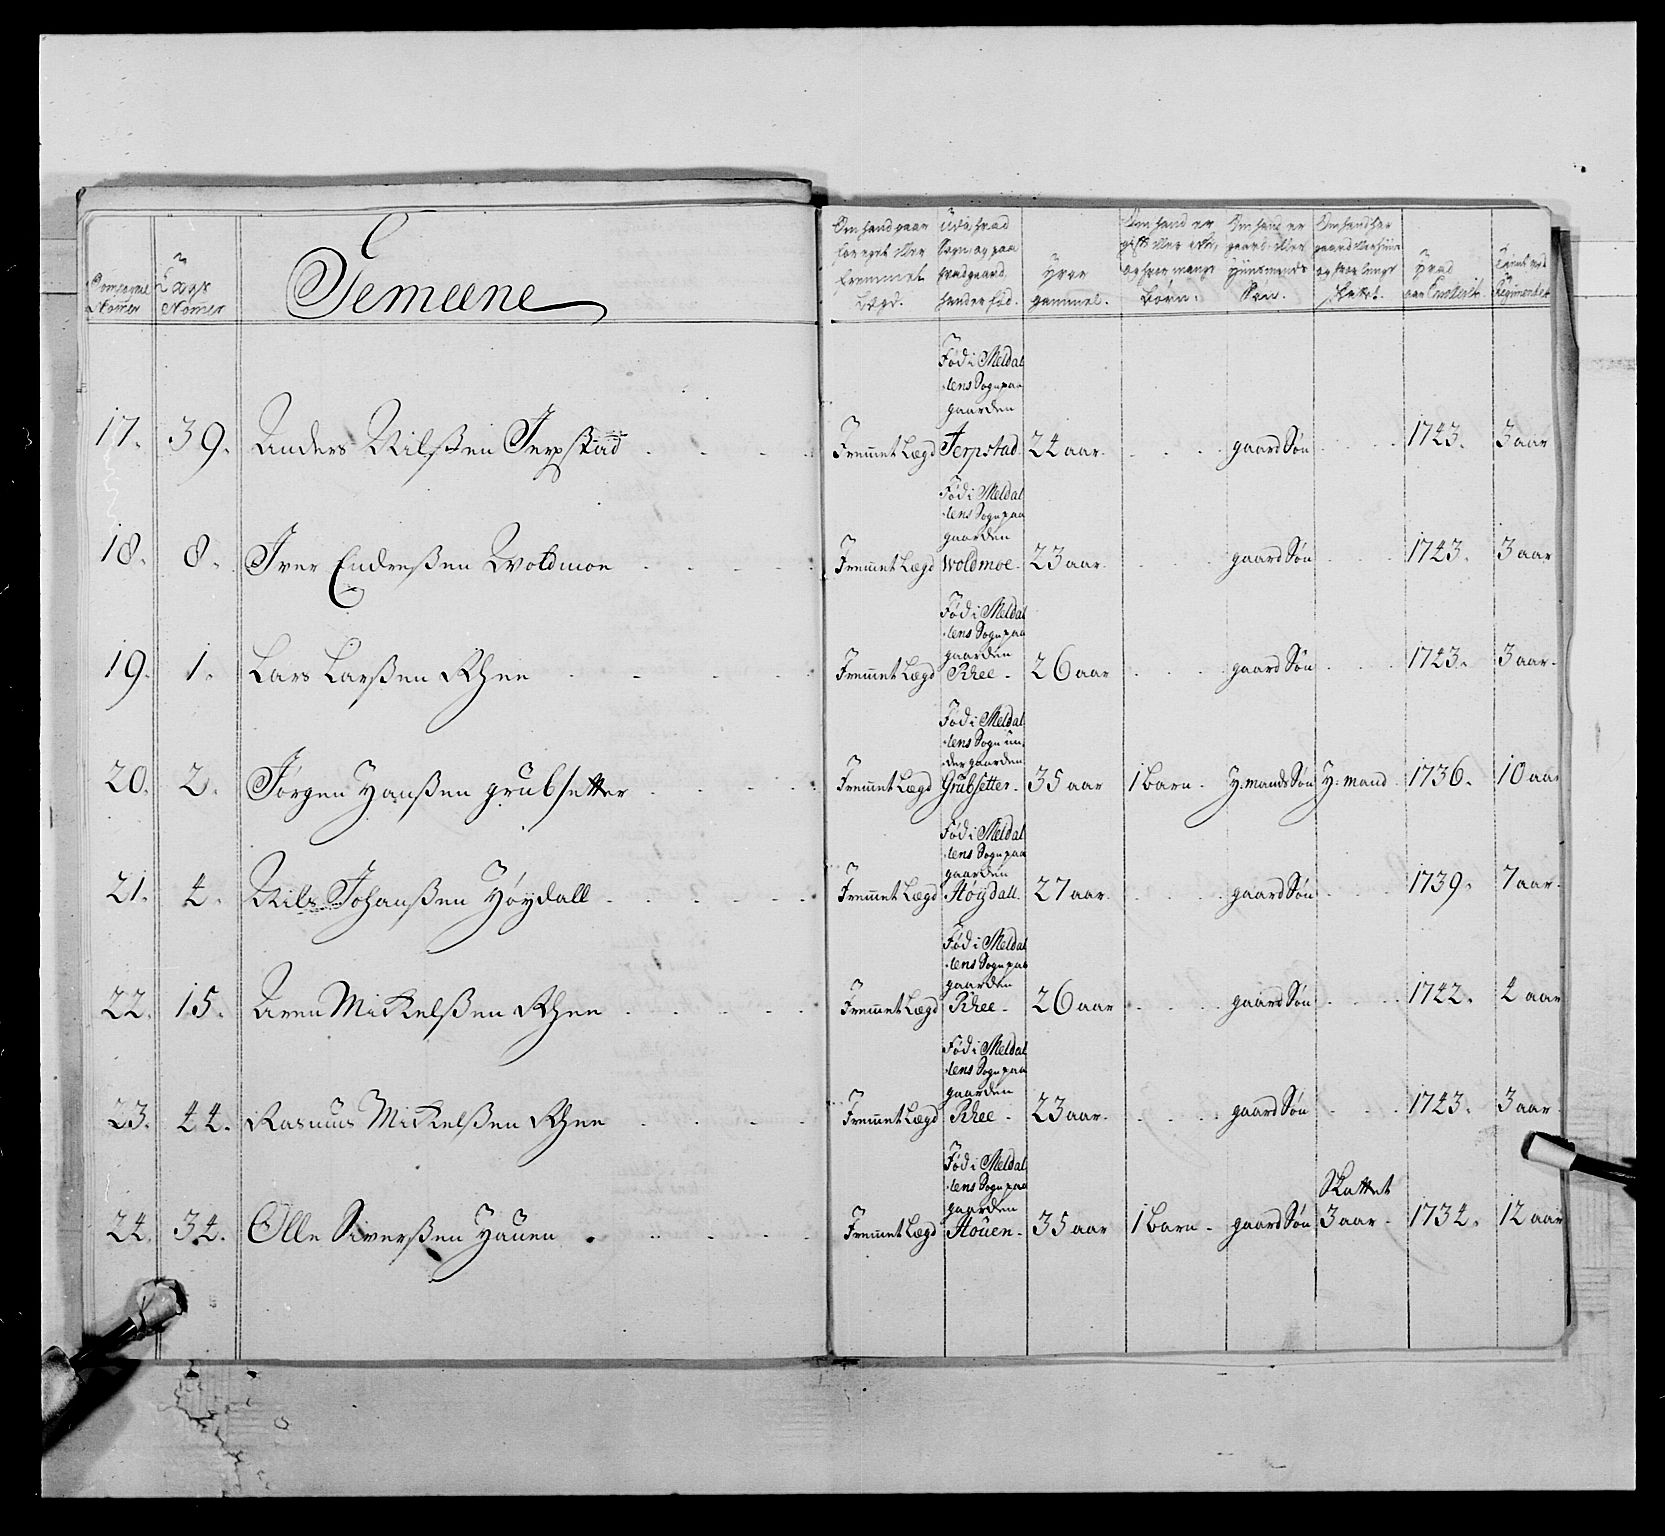 Compagnie Nomer
Lægs Nomer
Gemeene
Om hand gaar for eget eller fremmet Lægd.
Udi hvad Sogn og paa hvad gaard hand er fød.
Hvor gammel.
Om hand er gift eller ikke, og hvor mange Børn.
Om hand er gaard eller Huusmands Søn.
Om hand har gaard eller huus og hvor lenge skattet.
Hvad aar Enrollerit.
Tient ved Regimentet
17. 39. Anders Nilsßen Jerpstad Fremmet Lægd Fød i Meldalens Sogn paa gaarden Jerpstad. 24 aar. gaard Søn 1743. 3 aar
18. 8. Iver Endreßen Woldmoe Fremmet Lægd Fød i Meldalens Sogn paa gaarden Woldmoe. 23 aar. gaard Søn 1743. 3 aar
19. 1. Lars Larßen Rhee Fremmet Lægd Fød i Meldalens Sogn paa gaarden Rhee. 26 aar gaard Søn 1743. 3 aar.
20. 2. Jørgen Hanßen grubsetter Fremmet Lægd Fød i Meldalens Sogn under gaarden Grubsetter. 35 aar 1 Barn. H: mands Søn H: mand 1736. 10 aar
21. 4. Nils Johanßen Høydall Fremmet Lægd Fød i Meldalens Sogn paa gaarden Høydall. 27 aar. gaard Søn 1739. 7 aar.
22. 15. Aren Mickelßen Rhee Fremmet Lægd Fød i Meldalens Sogn paa gaarden Rhee. 26 aar gaard Søn 1742. 4 aar
23. 44. Rasmus Mickelßen Rhee Fremmet Lægd Fød i Meldalens Sogn paa gaarden Rhee. 23 aar. gaard Søn 1743. 3 aar
24. 34. Olle Siverßen Hauen Fremmet Lægd Fød i Meldalens Sogn paa gaarden Houen. 35 aar 1 Barn. gaard Søn Skattet 3 aar. 1734. 12 aar